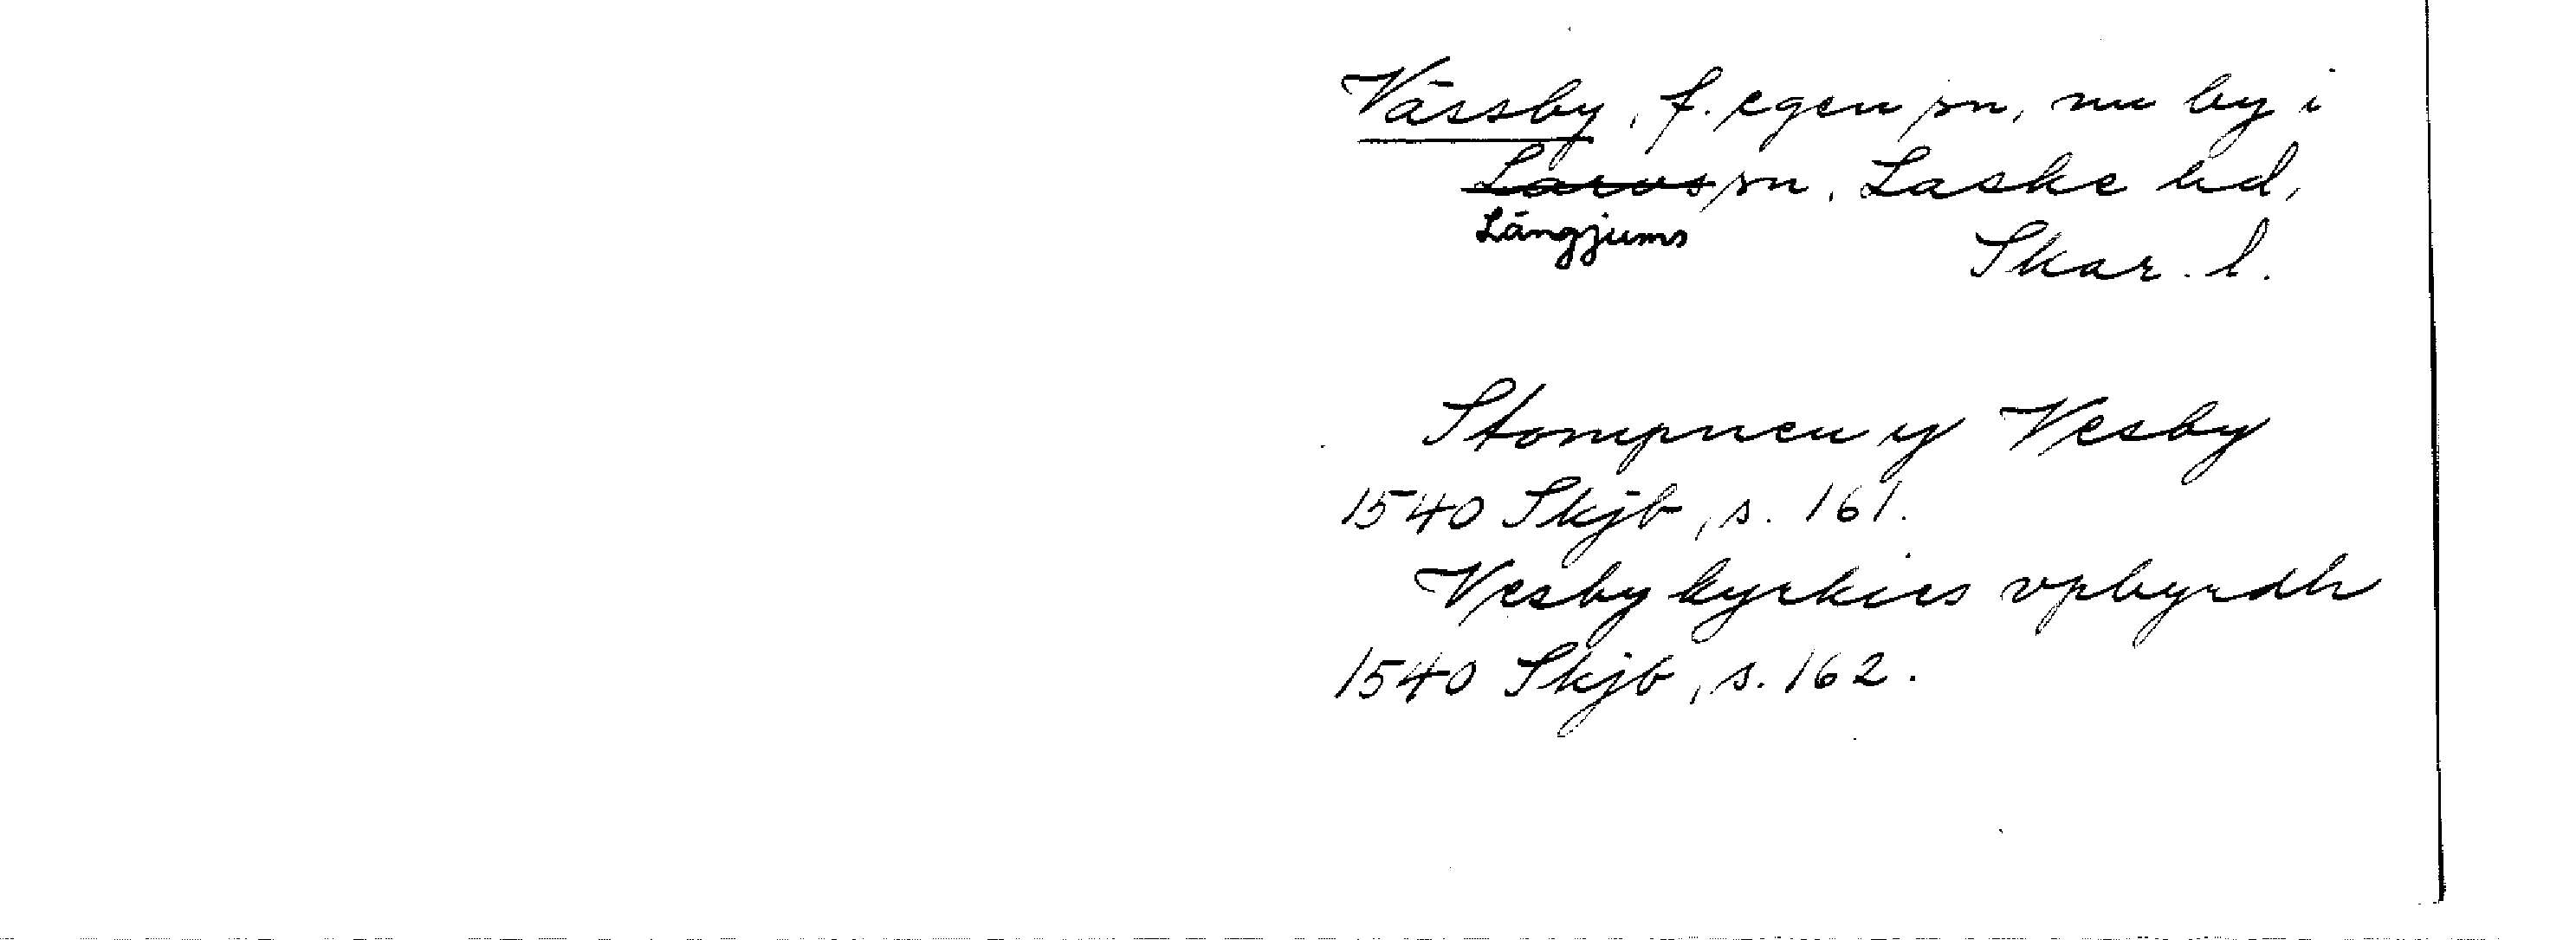 Vässby, f. egen sn, nu by i
Larvs sn, Laske hd,
Längjums
Skar. l.
Stompnen y Vesby
1540 Skjb, s. 161.
Vesby kyrkies vpbyrdh
1540 Skjb, s. 162.